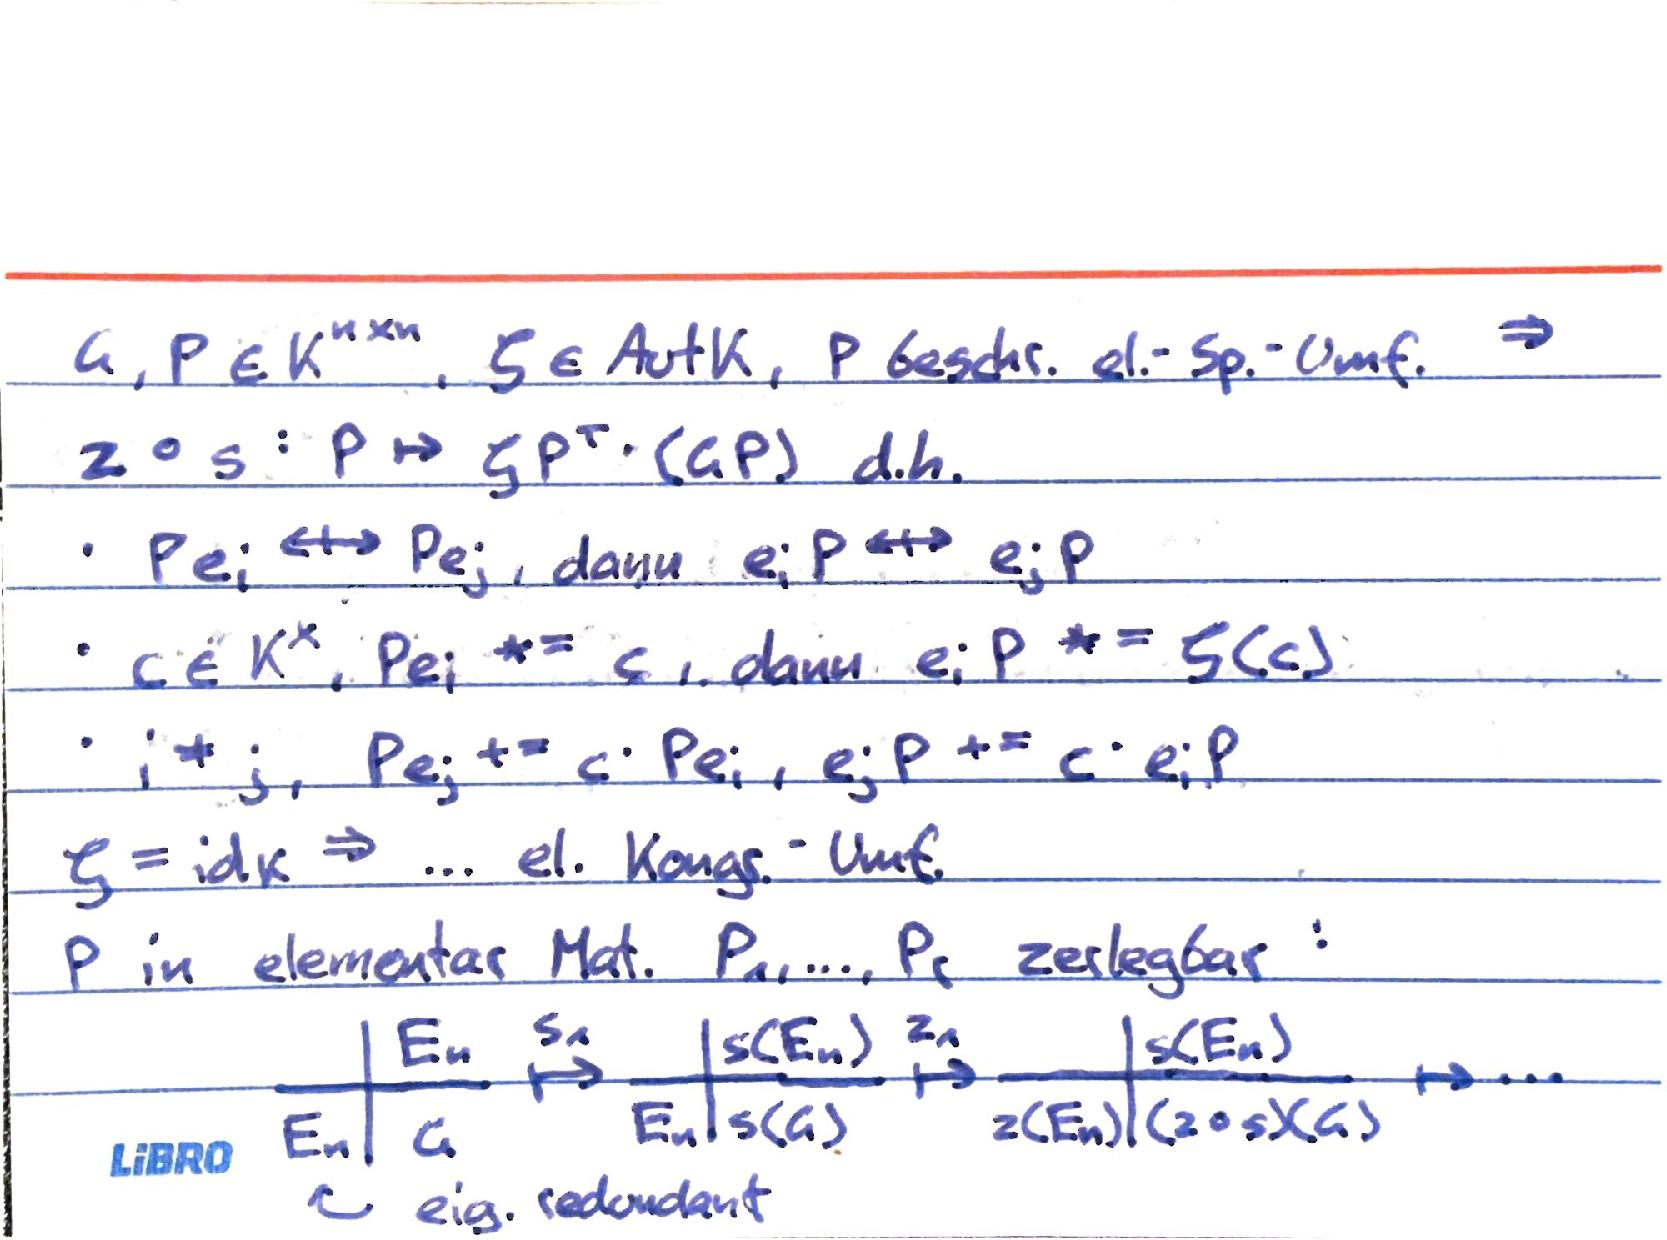 G, P ∈ K^{n×n}, ζ ∈ Aut K, P beschr. el.-Sp.-Umf. ⇒
z ∘ s : P ↦ ζP^T · (GP) d.h.
· Pe_i ↔ Pe_j, dann e_iP ↔ e_jP
· c ∈ K^×, Pe_i *= c, dann e_iP *= ζ(c)
· i ≠ j, Pe_j += c · Pe_i, e_jP += c · e_iP
ζ = id_K ⇒ ... el. Kongr.-Umf.
P in elementar Mat. P_1, ..., P_r zerlegbar :
| E_n s_1 ↦ | s(E_n) z_1 ↦ | s(E_n) ↦ ...
E_n | G E_n | s(G) z(E_n) | (z∘s)(G)
LiBRO
eig. redundant